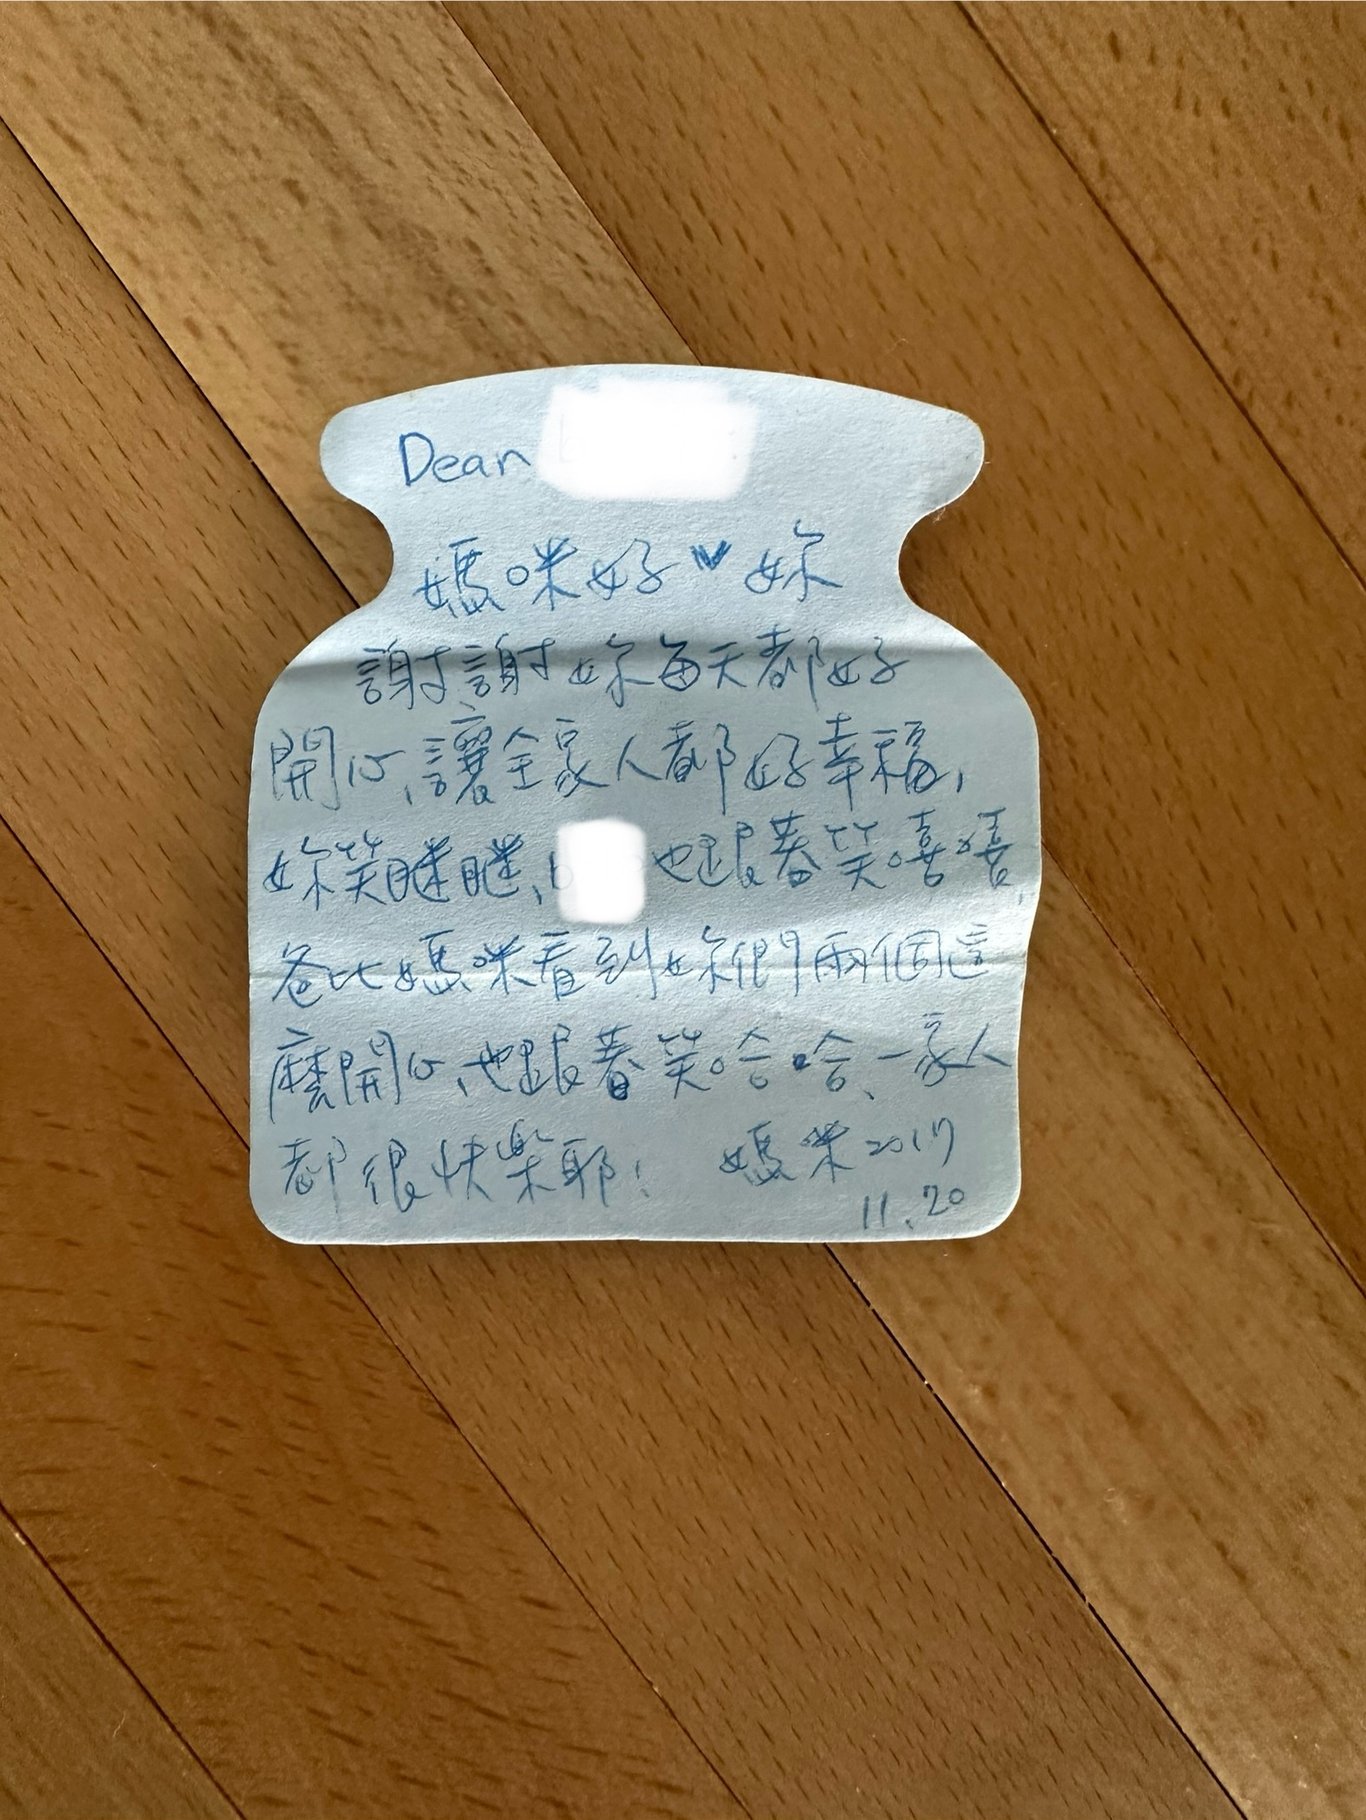 Dear
媽咪好♥妳
謝謝妳每天都好
開心,讓全家人都好幸福,
妳笑瞇瞇、也跟著笑嘻嘻,
爸比媽咪看到妳們兩個這
麼開心,也跟著笑哈哈、一家人
都很快樂耶! 媽咪2017
11.20